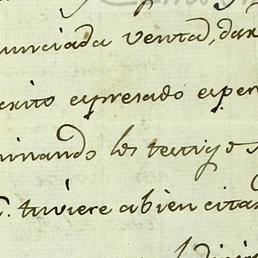 unciada venta, dar
crito expresado exper
minando los testigos
tuviere abien cita